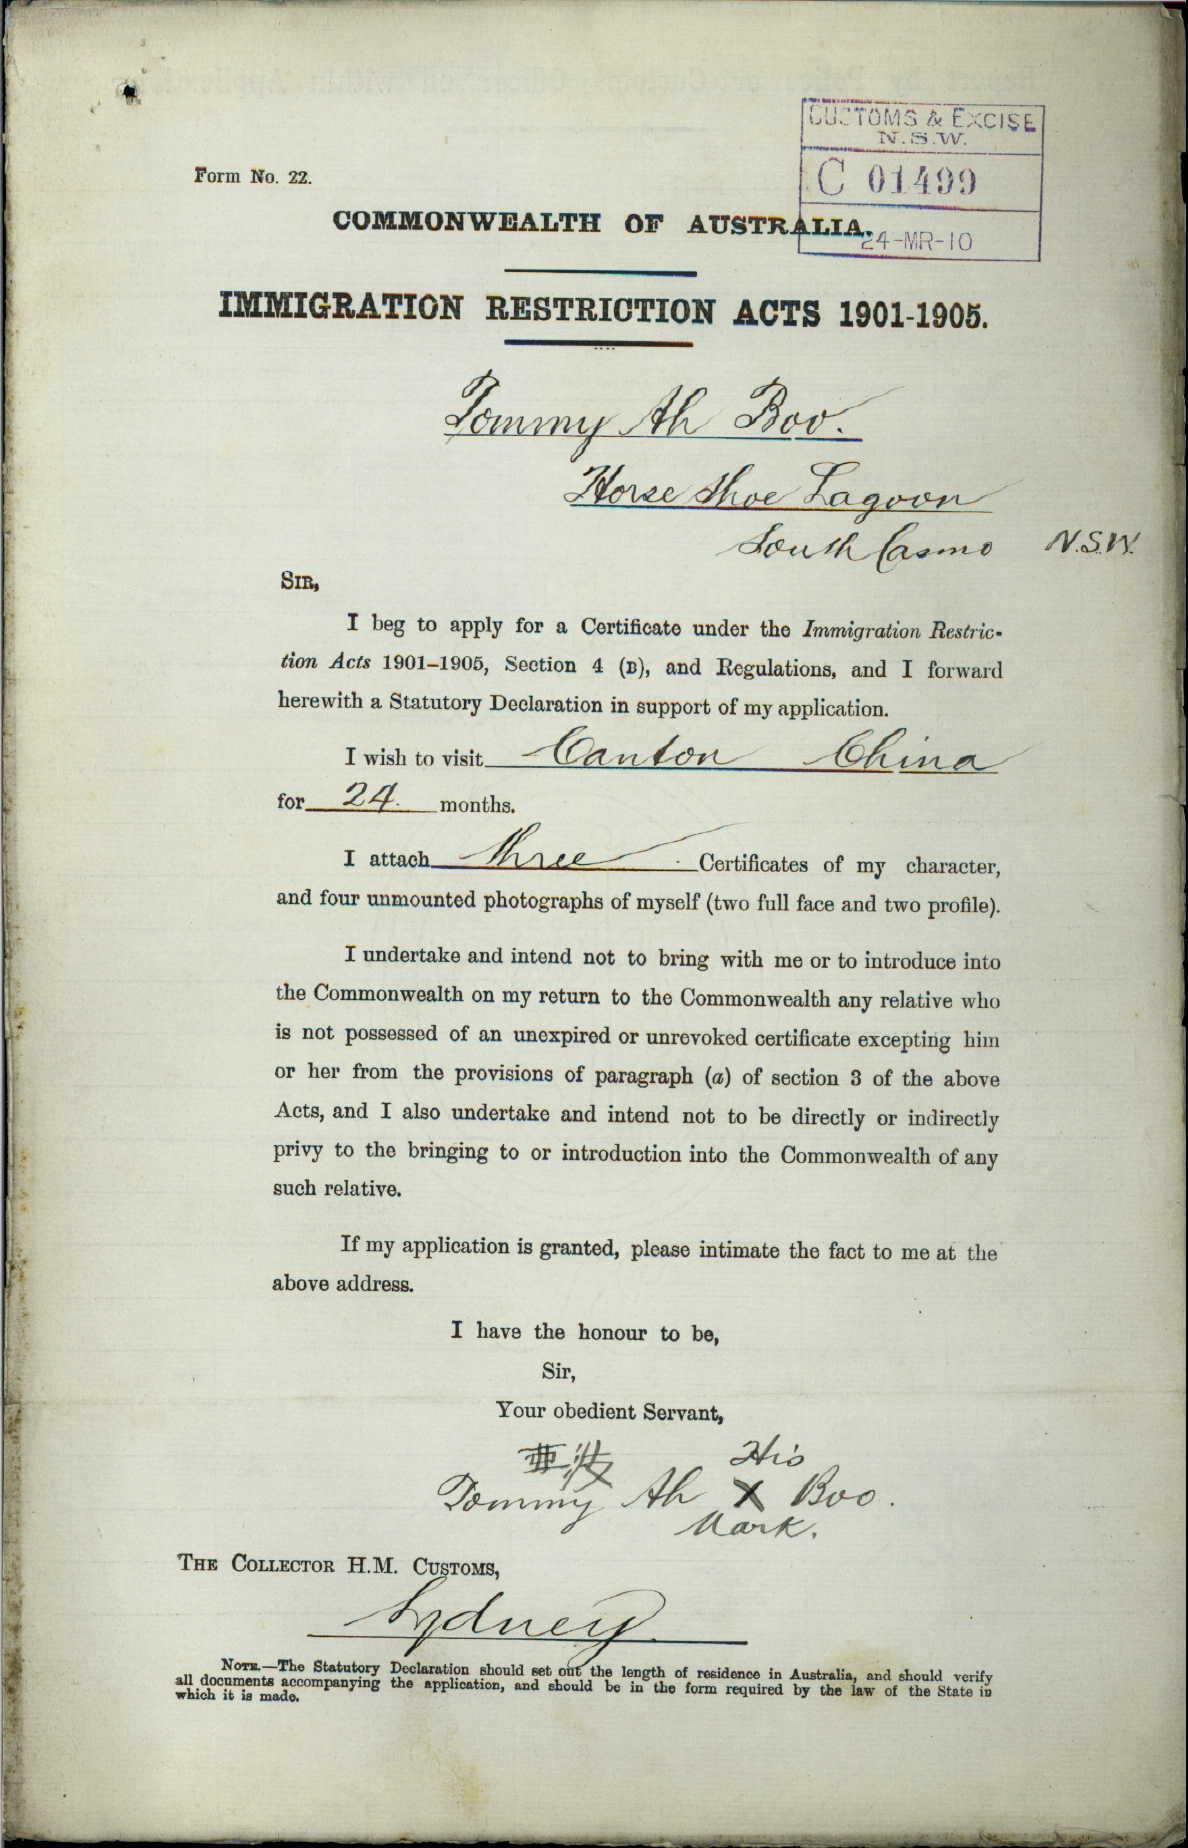 CUSTOMS & EXCISE
N.S.W.
C 01499
24-MR-10
Form No. 22.
COMMONWEALTH OF AUSTRALIA.
IMMIGRATION RESTRICTION ACTS 1901-1905.
Tommy Ah Boo.
Horse Shoe Lagoon
South Casino N.S.W.
SIR,
I beg to apply for a Certificate under the Immigration Restric-
tion Acts 1901–1905, Section 4 (B), and Regulations, and I forward
herewith a Statutory Declaration in support of my application.
I wish to visit Canton China
for 24. months.
I attach three Certificates of my character,
and four unmounted photographs of myself (two full face and two profile).
I undertake and intend not to bring with me or to introduce into
the Commonwealth on my return to the Commonwealth any relative who
is not possessed of an unexpired or unrevoked certificate excepting him
or her from the provisions of paragraph (a) of section 3 of the above
Acts, and I also undertake and intend not to be directly or indirectly
privy to the bringing to or introduction into the Commonwealth of any
such relative.
If my application is granted, please intimate the fact to me at the
above address.
I have the honour to be,
Sir,
Your obedient Servant,
His
Tommy Ah X Boo.
Mark.
THE COLLECTOR H.M. CUSTOMS,
Sydney.
NOTE.—The Statutory Declaration should set out the length of residence in Australia, and should verify
all documents accompanying the application, and should be in the form required by the law of the State in
which it is made.